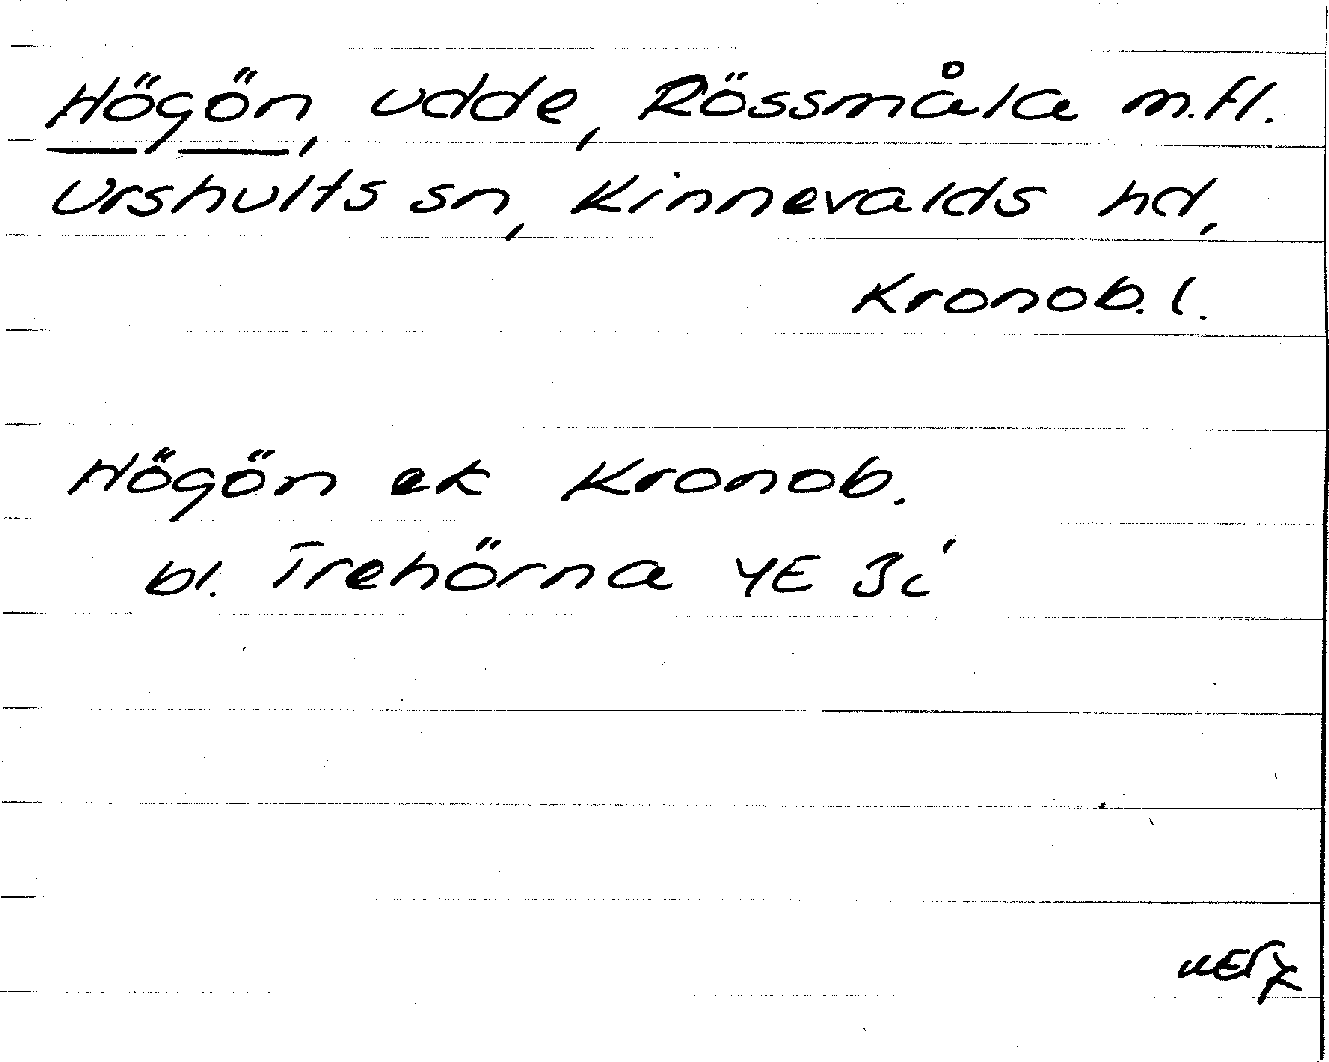 Högön, udde, Rössmåla m.fl.
Urshults sn, Kinnevalds hd,
Kronob. l.
Högön ek Kronob.
bl. Trehörna 4E 3c